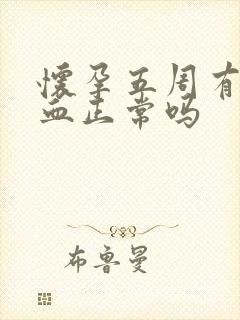 怀孕五周有
血正常吗
布鲁曼